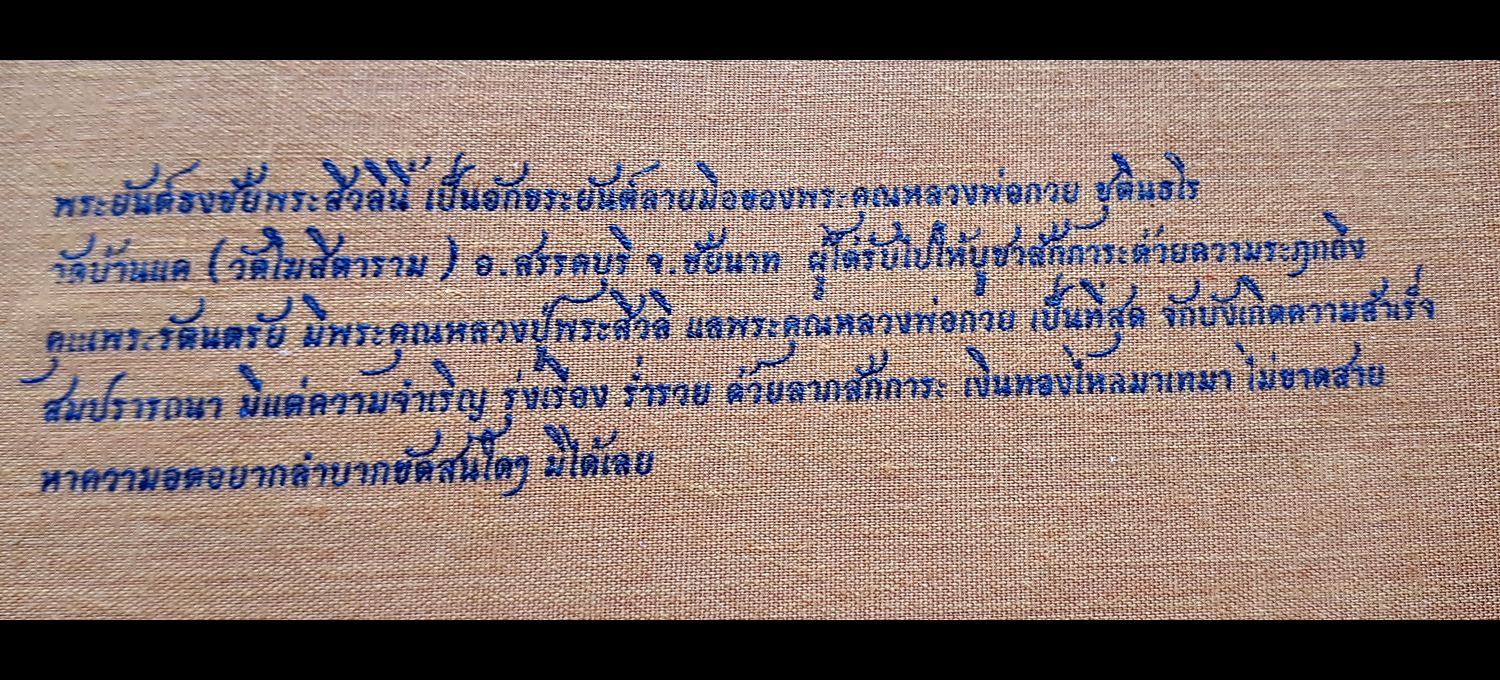 พระยันต์ธงชัยพระสีวลีนี้ เป็นอักขระยันต์ลายมือของพระคุณหลวงพ่อกวย ชุตินธโร
วัดบ้านแค (วัดโฆสิตาราม ) อ.สรรคบุรี จ.ชัยนาท ผู้ใดรับไปให้บูชาสักการะด้วยความระฦกถึง
คุณพระรัตนตรัย มีพระคุณหลวงปู่พระสีวลี แลพระคุณหลวงพ่อกวย เป็นที่สุด จักบังเกิดความสำเร็จ
สมปรารถนา มีแต่ความจำเริญ รุ่งเรือง ร่ำรวย ด้วยลาภสักการะ เงินทองไหลมาเทมา ไม่ขาดสาย
หาความอดอยากลำบากขัดสนใดๆ มิได้เลย